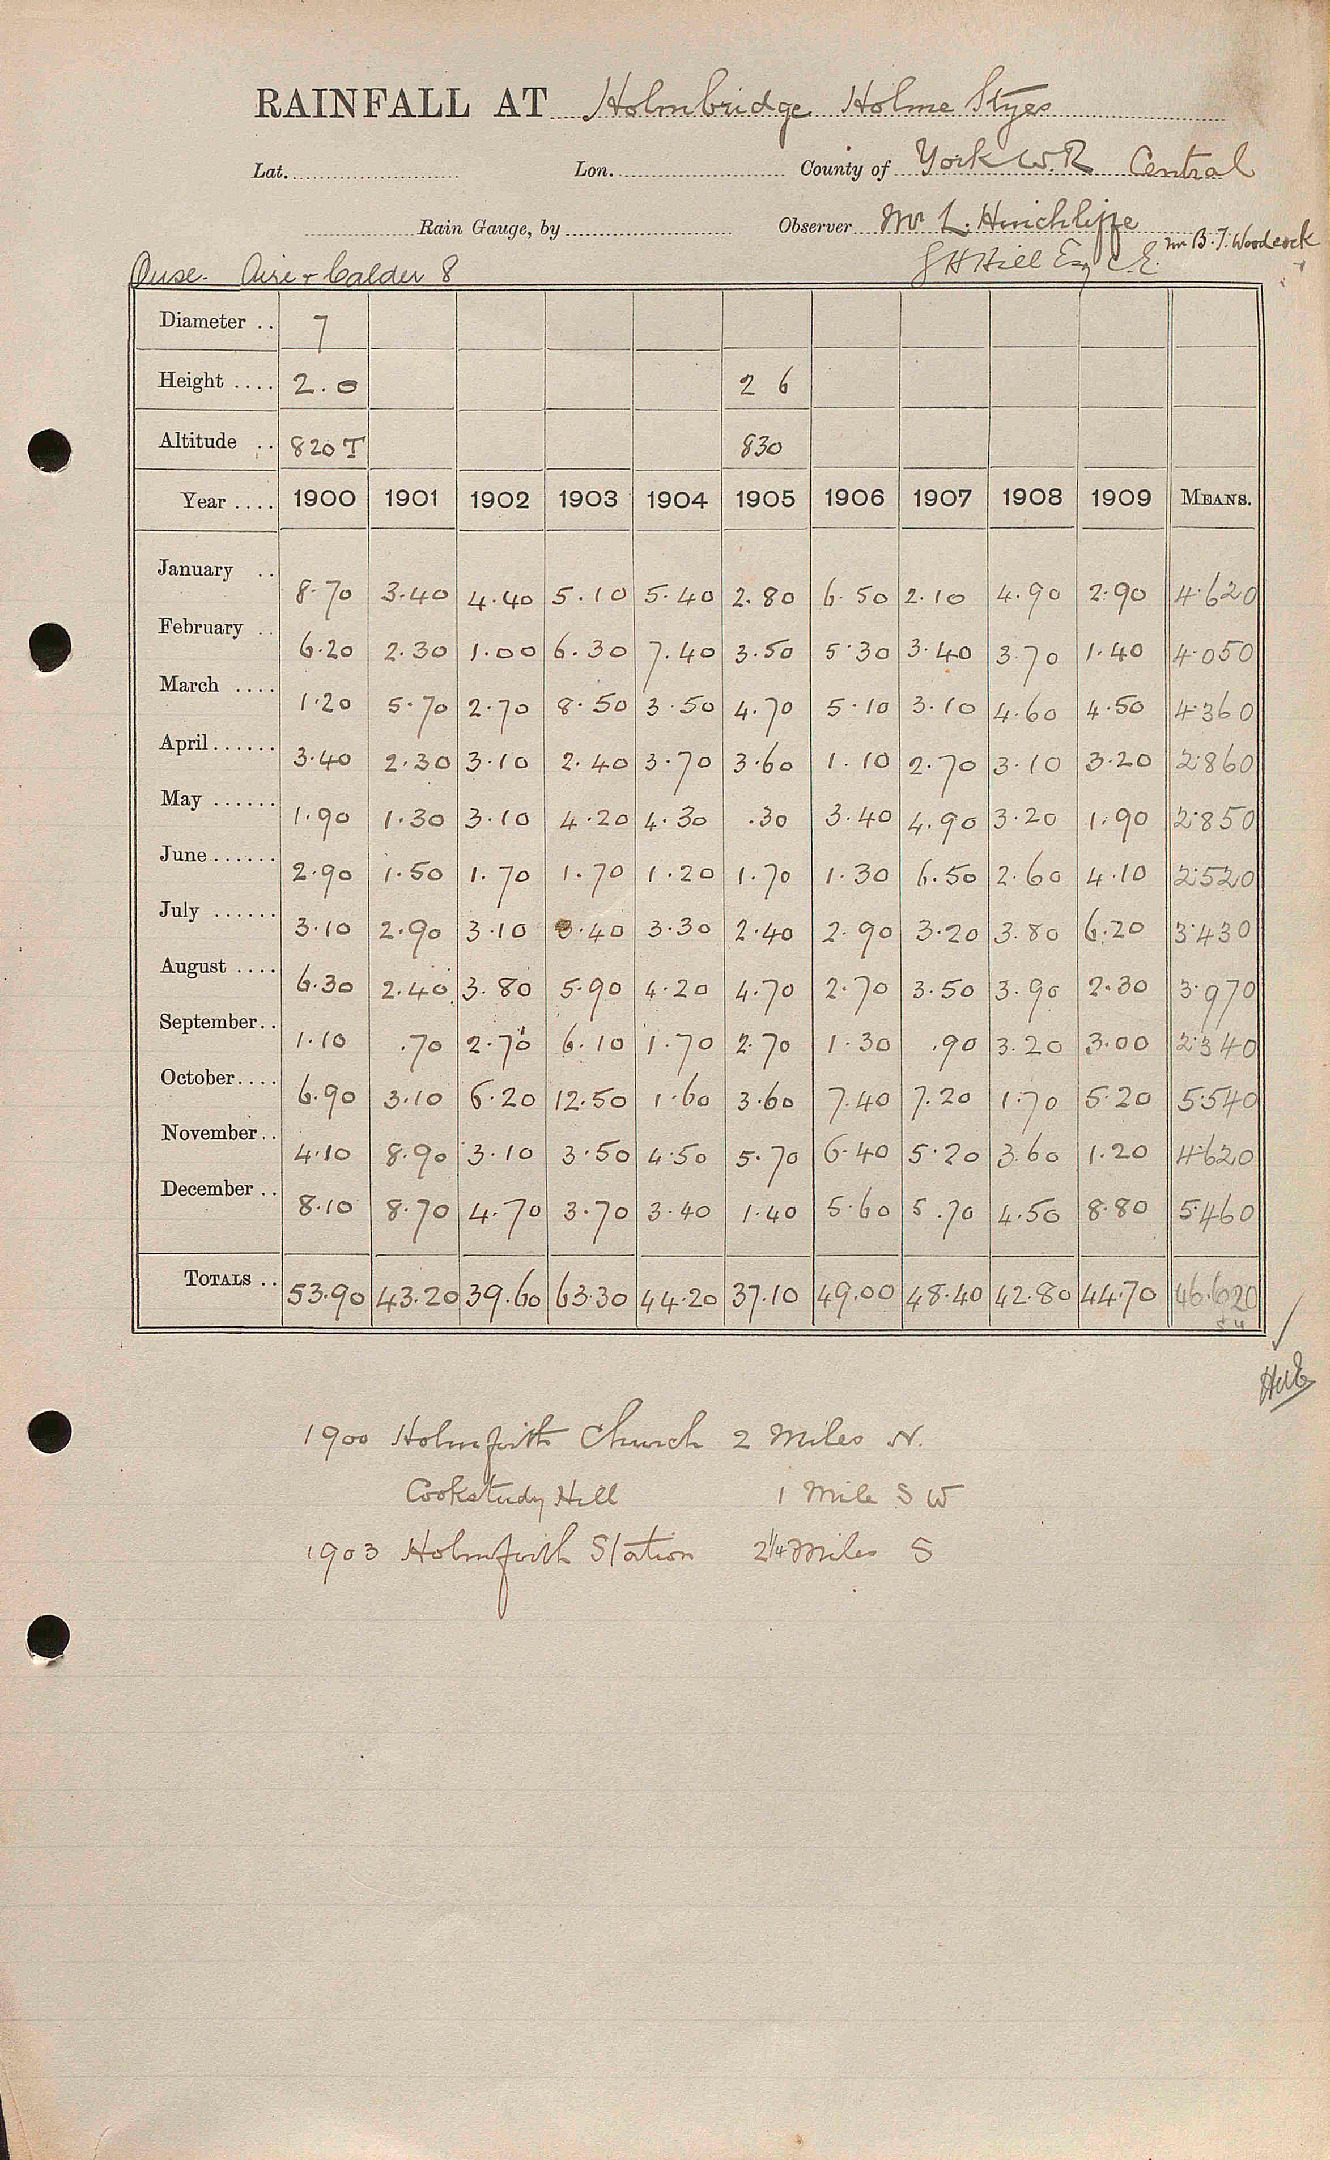 RAINFALL AT Holmbridge Holme Styes
Lat. Lon. County of York W.R Central
Rain Gauge, by Observer Mr L. Hinchliffe
Mr B. T. Woodcock
Ouse. Aire + Calder 8 G H Hill Esq C.E.
Diameter .. 7
Height .... 2.0 2 6
Altitude .. 820 T 830
Year .... 1900 1901 1902 1903 1904 1905 1906 1907 1908 1909 MEANS.
January .. 8.70 3.40 4.40 5.10 5.40 2.80 6.50 2.10 4.90 2.90 4.620
February .. 6.20 2.30 1.00 6.30 7.40 3.50 5.30 3.40 3.70 1.40 4.050
March .... 1.20 5.70 2.70 8.50 3.50 4.70 5.10 3.10 4.60 4.50 4.360
April...... 3.40 2.30 3.10 2.40 3.70 3.60 1.10 2.70 3.10 3.20 2.860
May ...... 1.90 1.30 3.10 4.20 4.30 .30 3.40 4.90 3.20 1.90 2.850
June...... 2.90 1.50 1.70 1.70 1.20 1.70 1.30 6.50 2.60 4.10 2.520
July ...... 3.10 2.90 3.10 3.40 3.30 2.40 2.90 3.20 3.80 6.20 3.430
August .... 6.30 2.40 3.80 5.90 4.20 4.70 2.70 3.50 3.90 2.30 3.970
September.. 1.10 .70 2.70 6.10 1.70 2.70 1.30 .90 3.20 3.00 2.340
October.... 6.90 3.10 6.20 12.50 1.60 3.60 7.40 7.20 1.70 5.20 5.540
November.. 4.10 8.90 3.10 3.50 4.50 5.70 6.40 5.20 3.60 1.20 4.620
December .. 8.10 8.70 4.70 3.70 3.40 1.40 5.60 5.70 4.50 8.80 5.460
TOTALS .. 53.90 43.20 39.60 63.30 44.20 37.10 49.00 48.40 42.80 44.70 46.620
1900 Holmfirth Church 2 Miles N.
Cookstudy Hill 1 Mile S W
1903 Holmfirth Station 2¼ Miles S